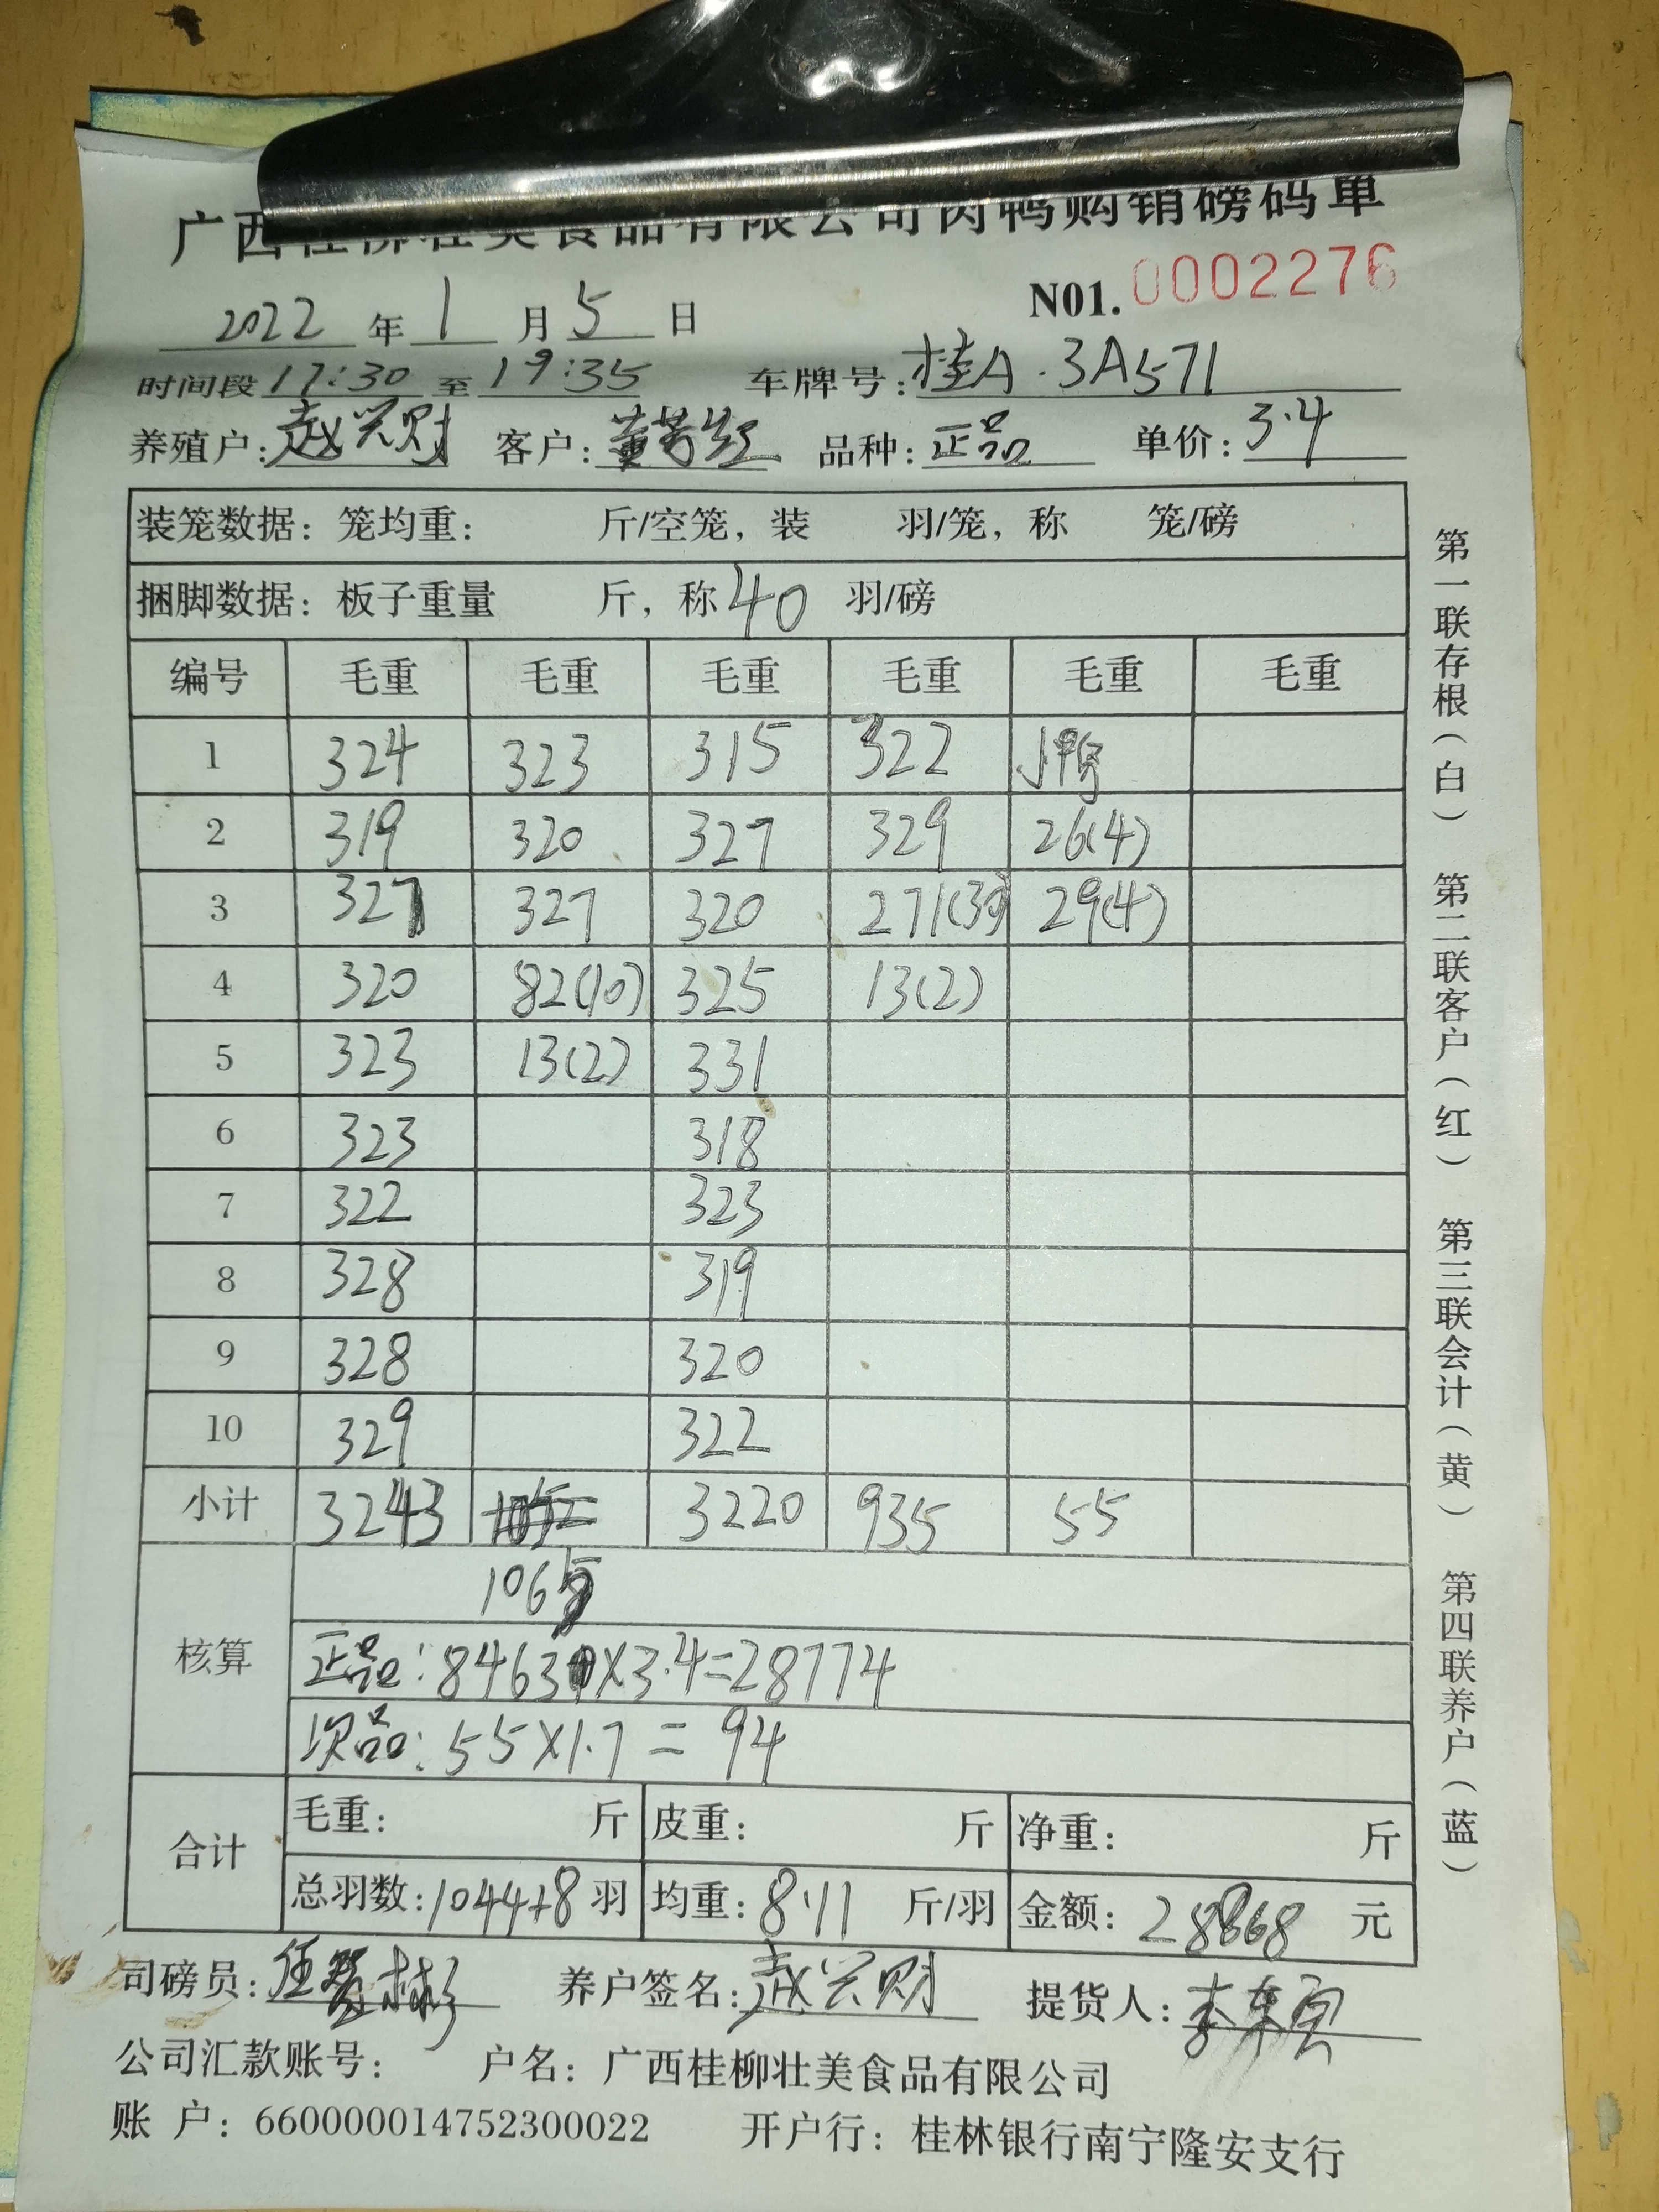 广西桂柳壮美食品有限公司肉鸭购销磅码单
N01. 0002276
2022 年 1 月 5 日
时间段 17:30 至 19:35 车牌号: 桂A·3A571
养殖户: 赵兴财 客户: 董芳 品种: 正品 单价: 3.4
装笼数据: 笼均重: 斤/空笼, 装 羽/笼, 称 笼/磅
捆脚数据: 板子重量 斤, 称 40 羽/磅
编号 毛重 毛重 毛重 毛重 毛重 毛重
1 324 323 315 322 小鸭
2 319 320 327 329 26(4)
3 327 327 320 271(30) 29(4)
4 320 82(10) 325 13(2)
5 323 13(2) 331
6 323 318
7 322 323
8 328 319
9 328 320
10 329 322
小计 3243 1052 3220 935 55
1065
核算 正品:8463×3.4=28774
次品:55×1.7=94
合计 毛重: 斤 皮重: 斤 净重: 斤
总羽数: 1044+8 羽 均重: 8.11 斤/羽 金额: 28868 元
司磅员: 养户签名: 赵兴财 提货人:
公司汇款账号: 户名: 广西桂柳壮美食品有限公司
账 户: 660000014752300022 开户行: 桂林银行南宁隆安支行
第一联存根(白) 第二联客户(红) 第三联会计(黄) 第四联养户(蓝)